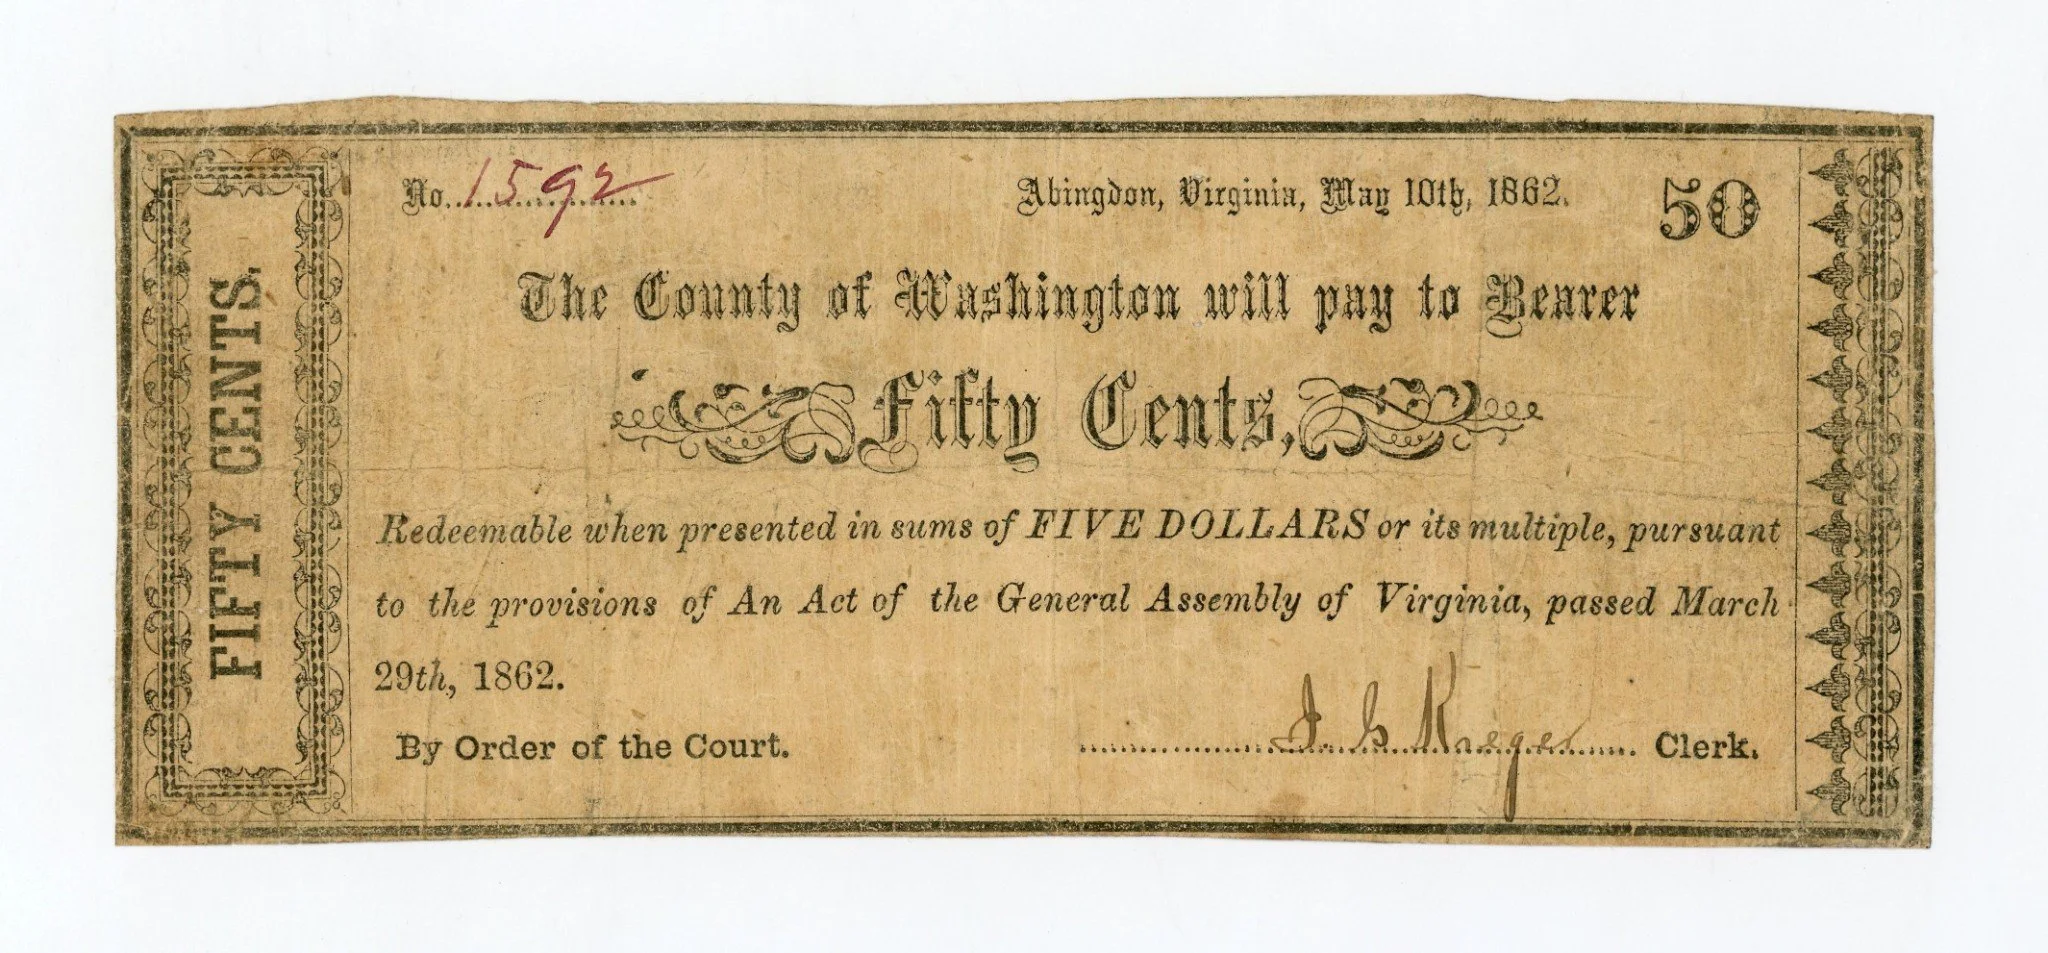 FIFTY CENTS.
No. 1592
Abingdon, Virginia, May 10th, 1862.
50
The County of Washington will pay to Bearer
Fifty Cents,
Redeemable when presented in sums of FIVE DOLLARS or its multiple, pursuant
to the provisions of An Act of the General Assembly of Virginia, passed March
29th, 1862.
By Order of the Court.
J. G. Kreger Clerk.